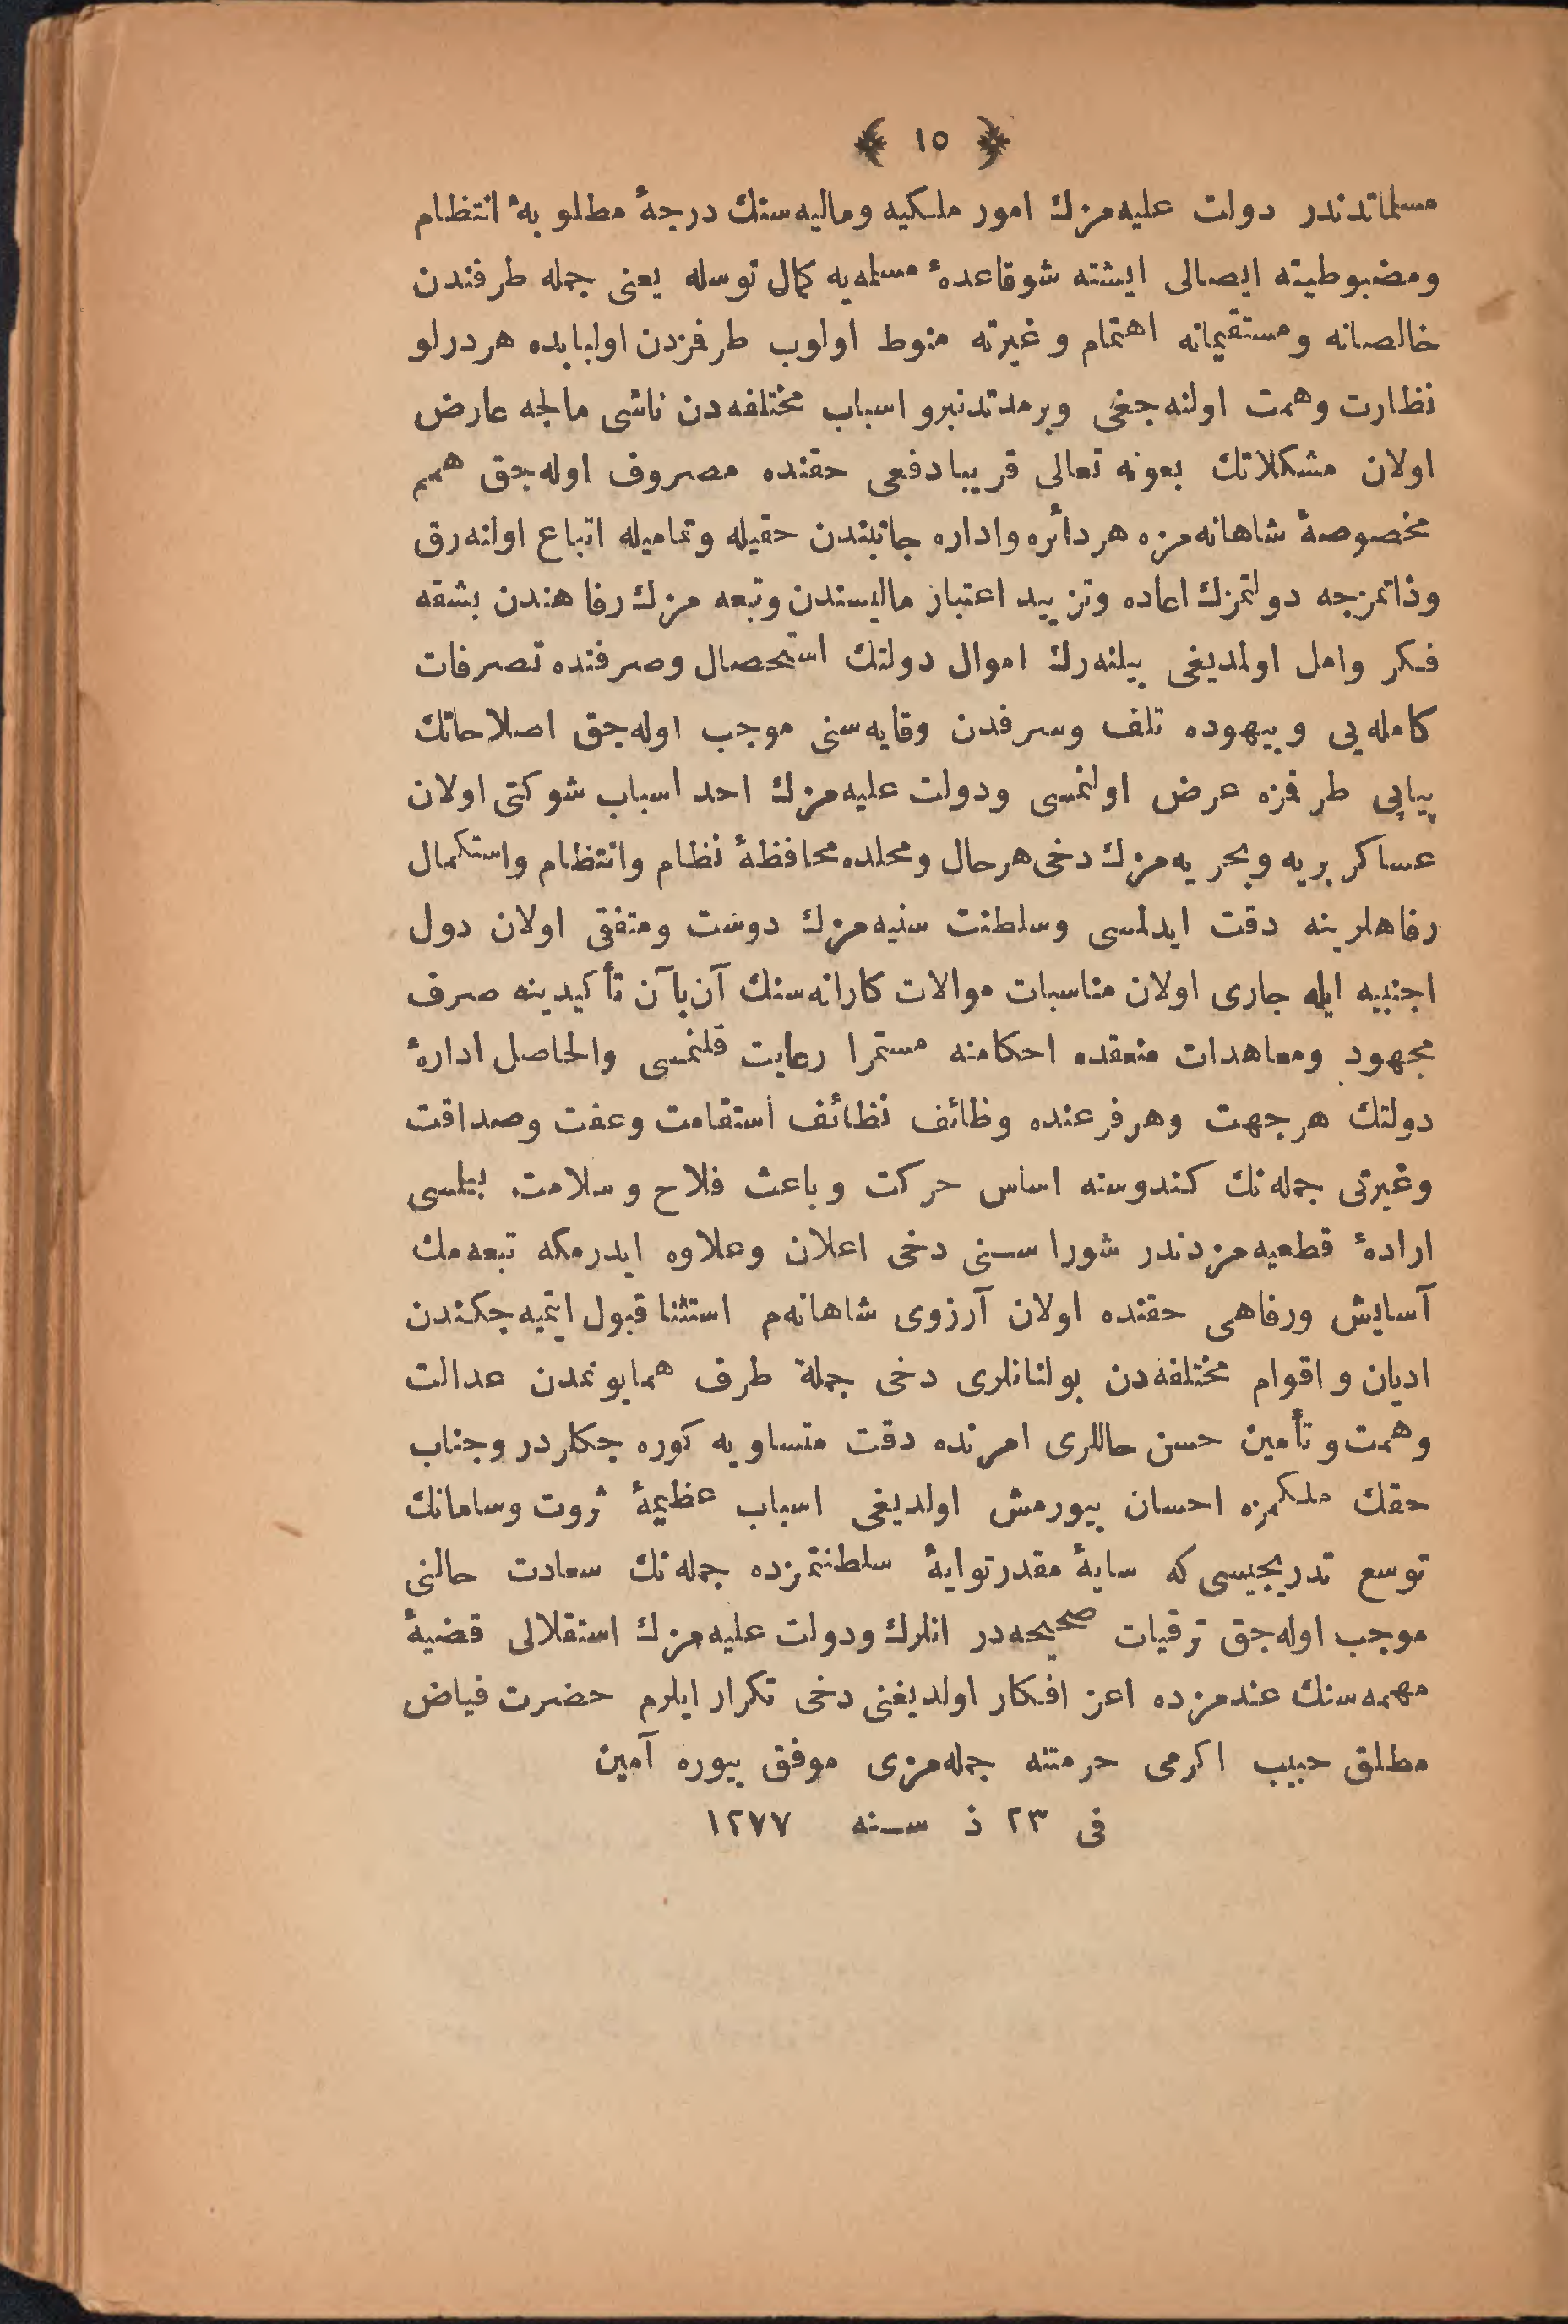 ﴿ ١٥ ﴾
مسلماتدندر دولت عليه‌مزك امور ملكيه وماليه‌سنك درجۀ مطلوبۀ انتظام
ومضبوطيته ايصالى ايشته شوقاعدۀ مسلمه‌يه كمال توسله يعنى جمله طرفندن
خالصانه ومستقيمانه اهتمام وغيرته منوط اولوب طرفزدن اولبابده هردرلو
نظارت وهمت اولنه‌جغى وبرمدتدنبرو اسباب مختلفه‌دن ناشى مالجه عارض
اولان مشكلاتك بعونه تعالى قريبا دفعى حقنده مصروف اوله‌جق همم
مخصوصۀ شاهانه‌مزه هردائره واداره جانبندن حقيله وتماميله اتباع اولنه‌رق
وذاتمزجه دولتمزك اعاده وتزييد اعتبار ماليسندن وتبعه مزك رفاهندن بشقه
فكر وامل اولمديغى بيلنه‌رك اموال دولتك استحصال وصرفنده تصرفات
كامله‌يى وبيهوده تلف وسرفدن وقايه‌سنى موجب اوله‌جق اصلاحاتك
پياپى طرفزه عرض اولنمسى ودولت عليه‌مزك احد اسباب شوكتى اولان
عساكر بريه وبحريه‌مزك دخى هرحال ومحلده محافظۀ نظام وانتظام واستكمال
رفاهلرينه دقت ايدلمسى وسلطنت سنيه‌مزك دوست ومتفقى اولان دول
اجنبيه ايله جارى اولان مناسبات موالات كارانه‌سنك آن بآن تأكيدينه صرف
مجهود ومعاهدات منعقده احكامنه مستمرا رعايت قلنمسى والحاصل ادارۀ
دولتك هرجهت وهرفرعنده وظائف نظائف استقامت وعفت وصداقت
وغيرتى جمله‌نك كندوسنه اساس حركت وباعث فلاح وسلامت بيلمسى
ارادۀ قطعيه‌مزدندر شوراسنى دخى اعلان وعلاوه ايدرمكه تبعه‌مك
آسايش ورفاهى حقنده اولان آرزوى شاهانه‌م استثنا قبول ايتميه‌جكندن
اديان واقوام مختلفه‌دن بولنانلرى دخى جملة طرف همايونمدن عدالت
وهمت وتأمين حسن حاللرى امرنده دقت متساويه كوره جكلردر وجناب
حقك ملكمزه احسان بيورمش اولديغى اسباب عظيمۀ ثروت وسامانك
توسع تدريجيسى كه سايۀ مقدرتوايۀ سلطنتمزده جمله‌نك سعادت حالنى
موجب اوله‌جق ترقيات صحيحه‌در انلرك ودولت عليه‌مزك استقلالى قضيۀ
مهمه‌سنك عندمزده اعز افكار اولديغنى دخى تكرار ايلرم حضرت فياض
مطلق حبيب اكرمى حرمتنه جمله‌مزى موفق بيوره آمين
فى ٢٣ ذ سنه ١٢٧٧